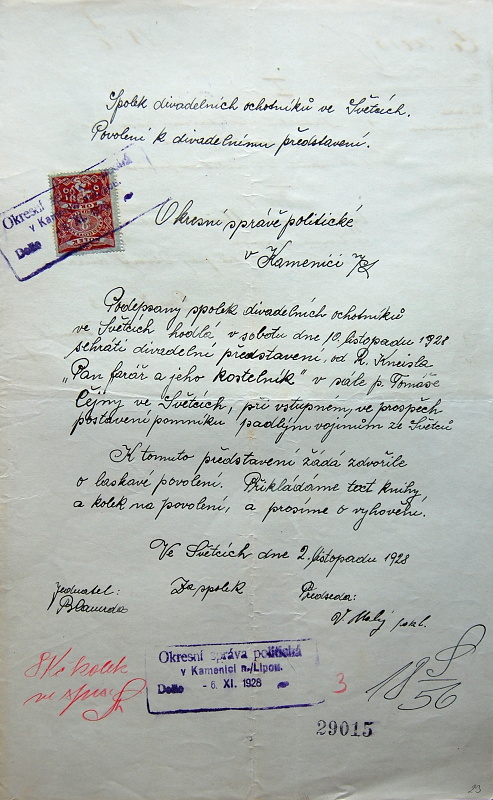 Spolek divadelních ochotníků ve Světcích.
Povolení k divadelnímu představení.
Okresní
v Kam
Došlo
Okresní správě politické
v Kamenici n/L
Podepsaný spolek divadelních ochotníků
ve Světcích hodlá, v sobotu dne 10. listopadu 1928
sehráti divadelní představení, od R. Kneisla
„Pan farář a jeho kostelník" v sále p. Tomáše
Čejny ve Světcích, při vstupném, ve prospěch
postavení pomníku padlým vojínům ze Světců
K tomuto představení žádá zdvořile
o laskavé povolení. Přikládáme text knihy,
a kolek na povolení, a prosíme o vyhovění.
Ve Světcích dne 2. listopadu 1928
jednatel: Za spolek Předseda:
V. Malý
8 Kč kolek
ve spisu
Okresní správa politická
v Kamenici n./Lipou.
Došlo - 6. XI. 1928
3
18 56
29015
23